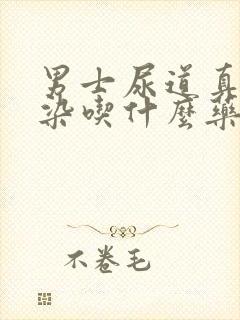 男士尿道真
染喫什麼藥
不卷毛